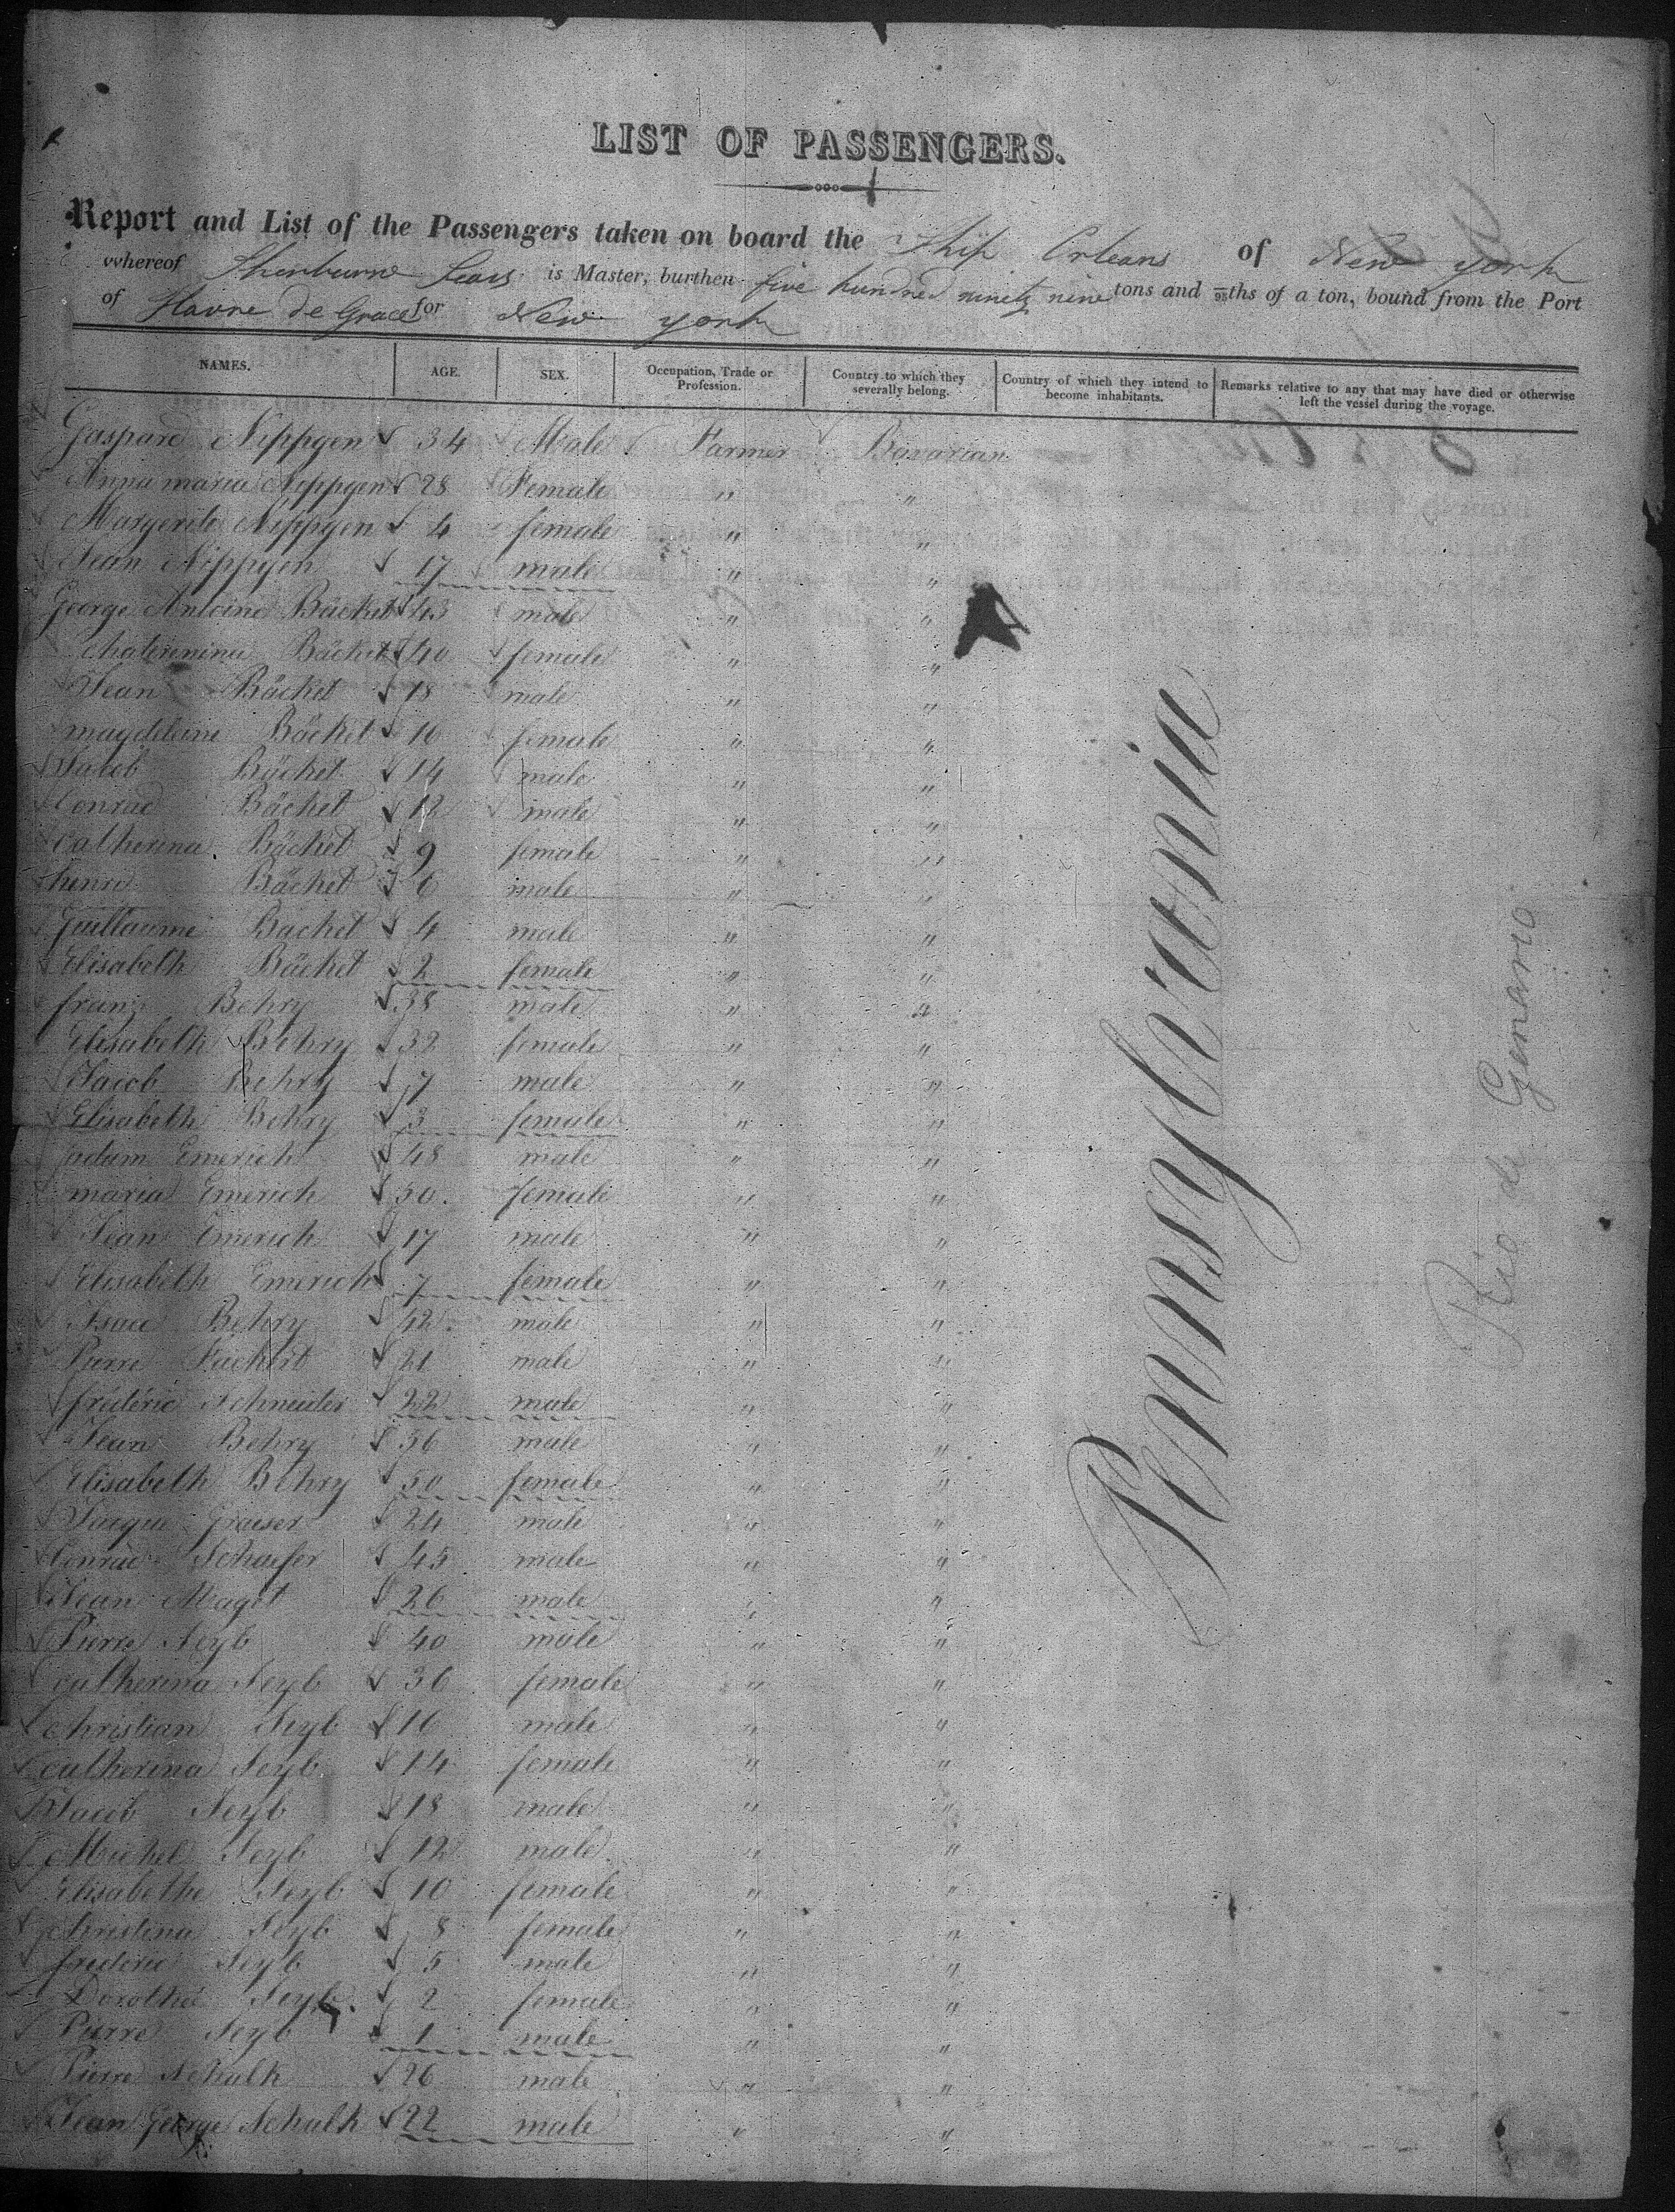 LIST OF PASSENGERS.
Report and List of the Passengers taken on board the Ship Orleans of New York
whereof Sherburne Sears is Master, burthen five hundred ninety nine tons and /95ths of a ton, bound from the Port
of Havre de Grace for New York
NAMES. AGE. SEX. Occupation, Trade or Profession. Country to which they severally belong. Country of which they intend to become inhabitants. Remarks relative to any that may have died or otherwise left the vessel during the voyage.
Gaspard Nippgen 34 Male Farmer Bavarian
Anna maria Nippgen 28 Female " "
Margerite Nippgen 4 female " "
Jean Nippgen 17 male " "
George Antoine Bäcket 43 male " "
Chaterinina Bäcket 40 female " "
Jean Bäcket 18 male " "
magdeleine Bäcket 16 female " "
Jacob Bäcket 14 male " "
Conrad Bäcket 12 male " "
Catherina Bäcket 9 female " "
henri Bäcket 6 male " "
Guillaume Bäcket 4 male " "
Elisabeth Bäcket 2 female " "
franz Behry 38 male " "
Elisabeth Behry 32 female " "
Jacob Behry 7 male " "
Elisabeth Behry 3 female " "
adam Emerich 48 male " "
maria Emerich 50. female " "
Jean Emerich 17 male " "
Elisabeth Emerich 7 female " "
Isaac Behry 42. male " "
Pierre 21 male " "
frédéric Schneider 22 male " "
Jean Behry 56 male " "
Elisabeth Behry 50 female " "
Jacque Graeser 24 male " "
Conrad Schaefer 45 male " "
Jean Maget 26 male " "
Pierre Seyb 40 male " "
catherina Seyb 36 female " "
christian Seyb 16 male " "
catherina Seyb 14 female " "
Jacob Seyb 18 male " "
Michel Seyb 12 male " "
Elisabethe Seyb 10 female " "
christina Seyb 8 female " "
frédéric Seyb 5 male " "
Dorothé Seyb 2 female " "
Pierre Seyb 1 male " "
Pierre Schalk 26 male " "
Jean George Schalk 22 male " "
Pennsylvania
Rio de Genario